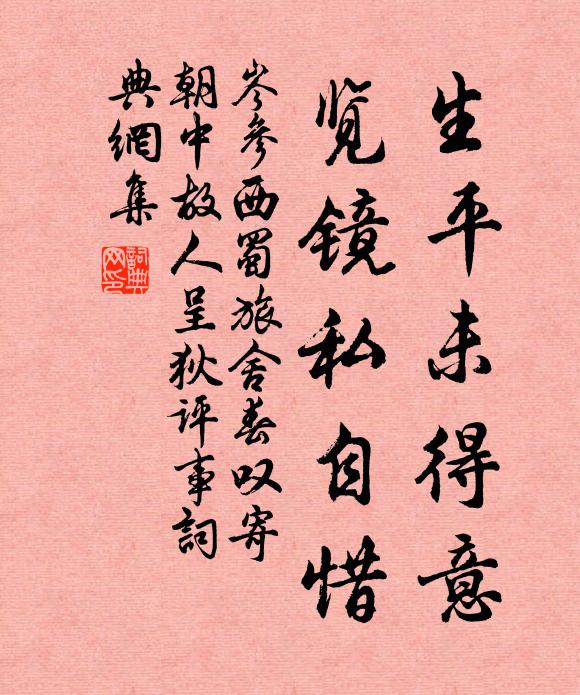 生平未得意
览镜私自惜
岑参西蜀旅舍春叹寄
朝中故人呈狄评事詞
典網集
詞典
网印